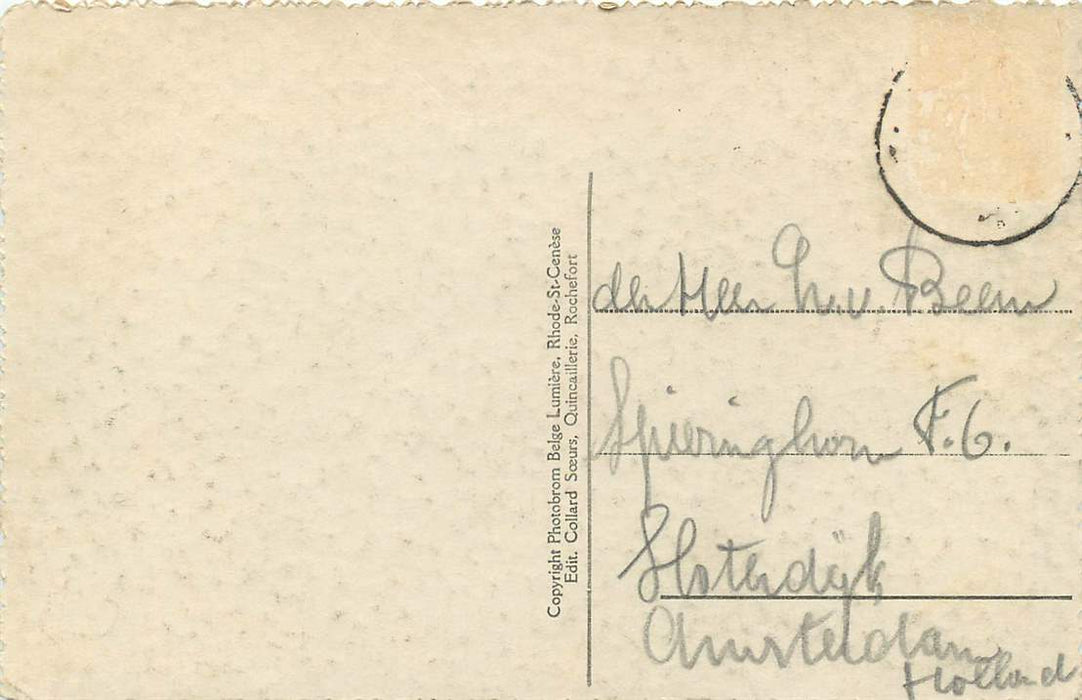 Copyright Photobrom Belge Lumière, Rhode-St-Cenèse
Edit. Collard Sœurs, Quincaillerie, Rochefort
den Heer G. v. Beem
Spieringhorn F.6.
Sloterdijk
Amsterdam
Holland